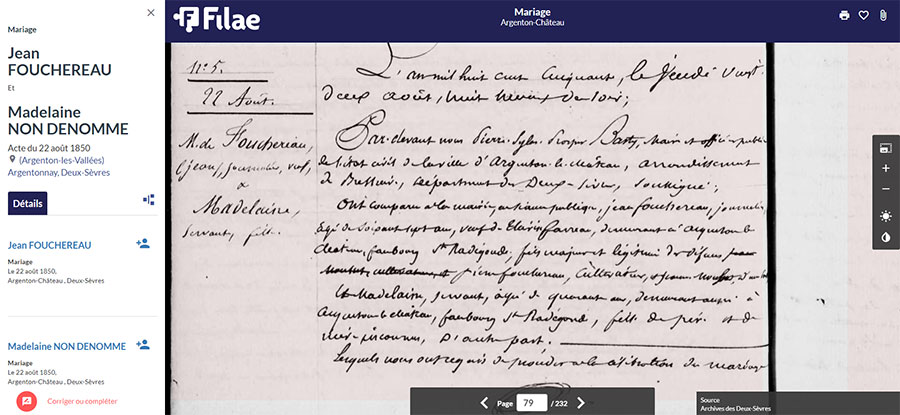 Mariage
Jean
FOUCHEREAU
Et
Madelaine
NON DENOMME
Acte du 22 août 1850
(Argenton-les-Vallées)
Argentonnay, Deux-Sèvres
Détails
Jean FOUCHEREAU
Mariage
Le 22 août 1850,
Argenton-Château , Deux-Sèvres
Madelaine NON DENOMME
Mariage
Le 22 août 1850,
Argenton-Château , Deux-Sèvres
Corriger ou compléter
Filae
Mariage
Argenton-Château
n°. 5.
22 Août.
M. de Fouchereau,
(jean), journalier, veuf,
&
Madelaine,
servante, fille.
L'an mil huit cent cinquante, le jeudi vingt
deux août, huit heures du soir;
Par-devant nous Pierre Prosper Barty, Maire et officier public
de l'état civil de la ville d'Argenton-le-château, arrondissement
de Bressuire, département des Deux-Sèvres, soussigné;
Ont comparu à la maison publique, jean fouchereau, journalier
âgé de soixante sept ans, veuf de Farreau, demeurant à Argenton-le
château, faubourg St Radégonde, fils majeur et légitime de défunts
pierre fouchereau, Cultivateur, et jeanne
Et Madelaine, servante, âgée de quarante ans, demeurant aussi à
argenton-le château, faubourg St Radégonde, fille de père et de
mère inconnus, d'autre part.
Lesquels nous ont requis de procéder à la célébration du mariage
Page 79 / 232
Source
Archives des Deux-Sèvres